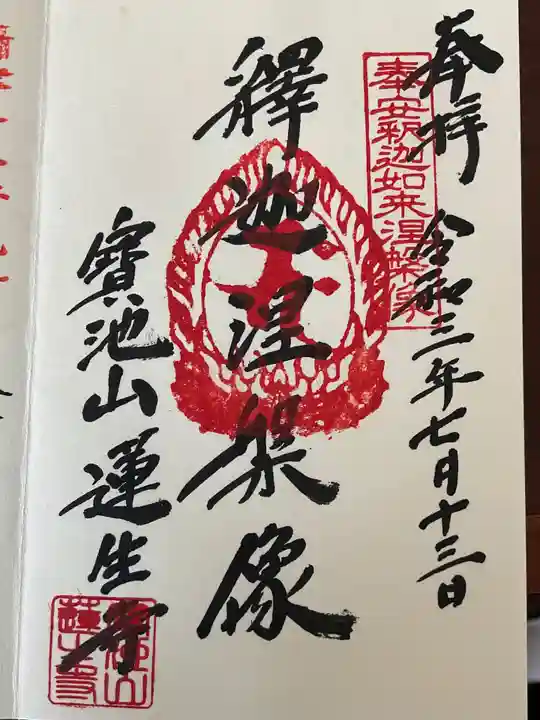 奉拝 令和三年七月十三日
奉安釈迦如来涅槃像
釋迦涅槃像
寳池山蓮生寺